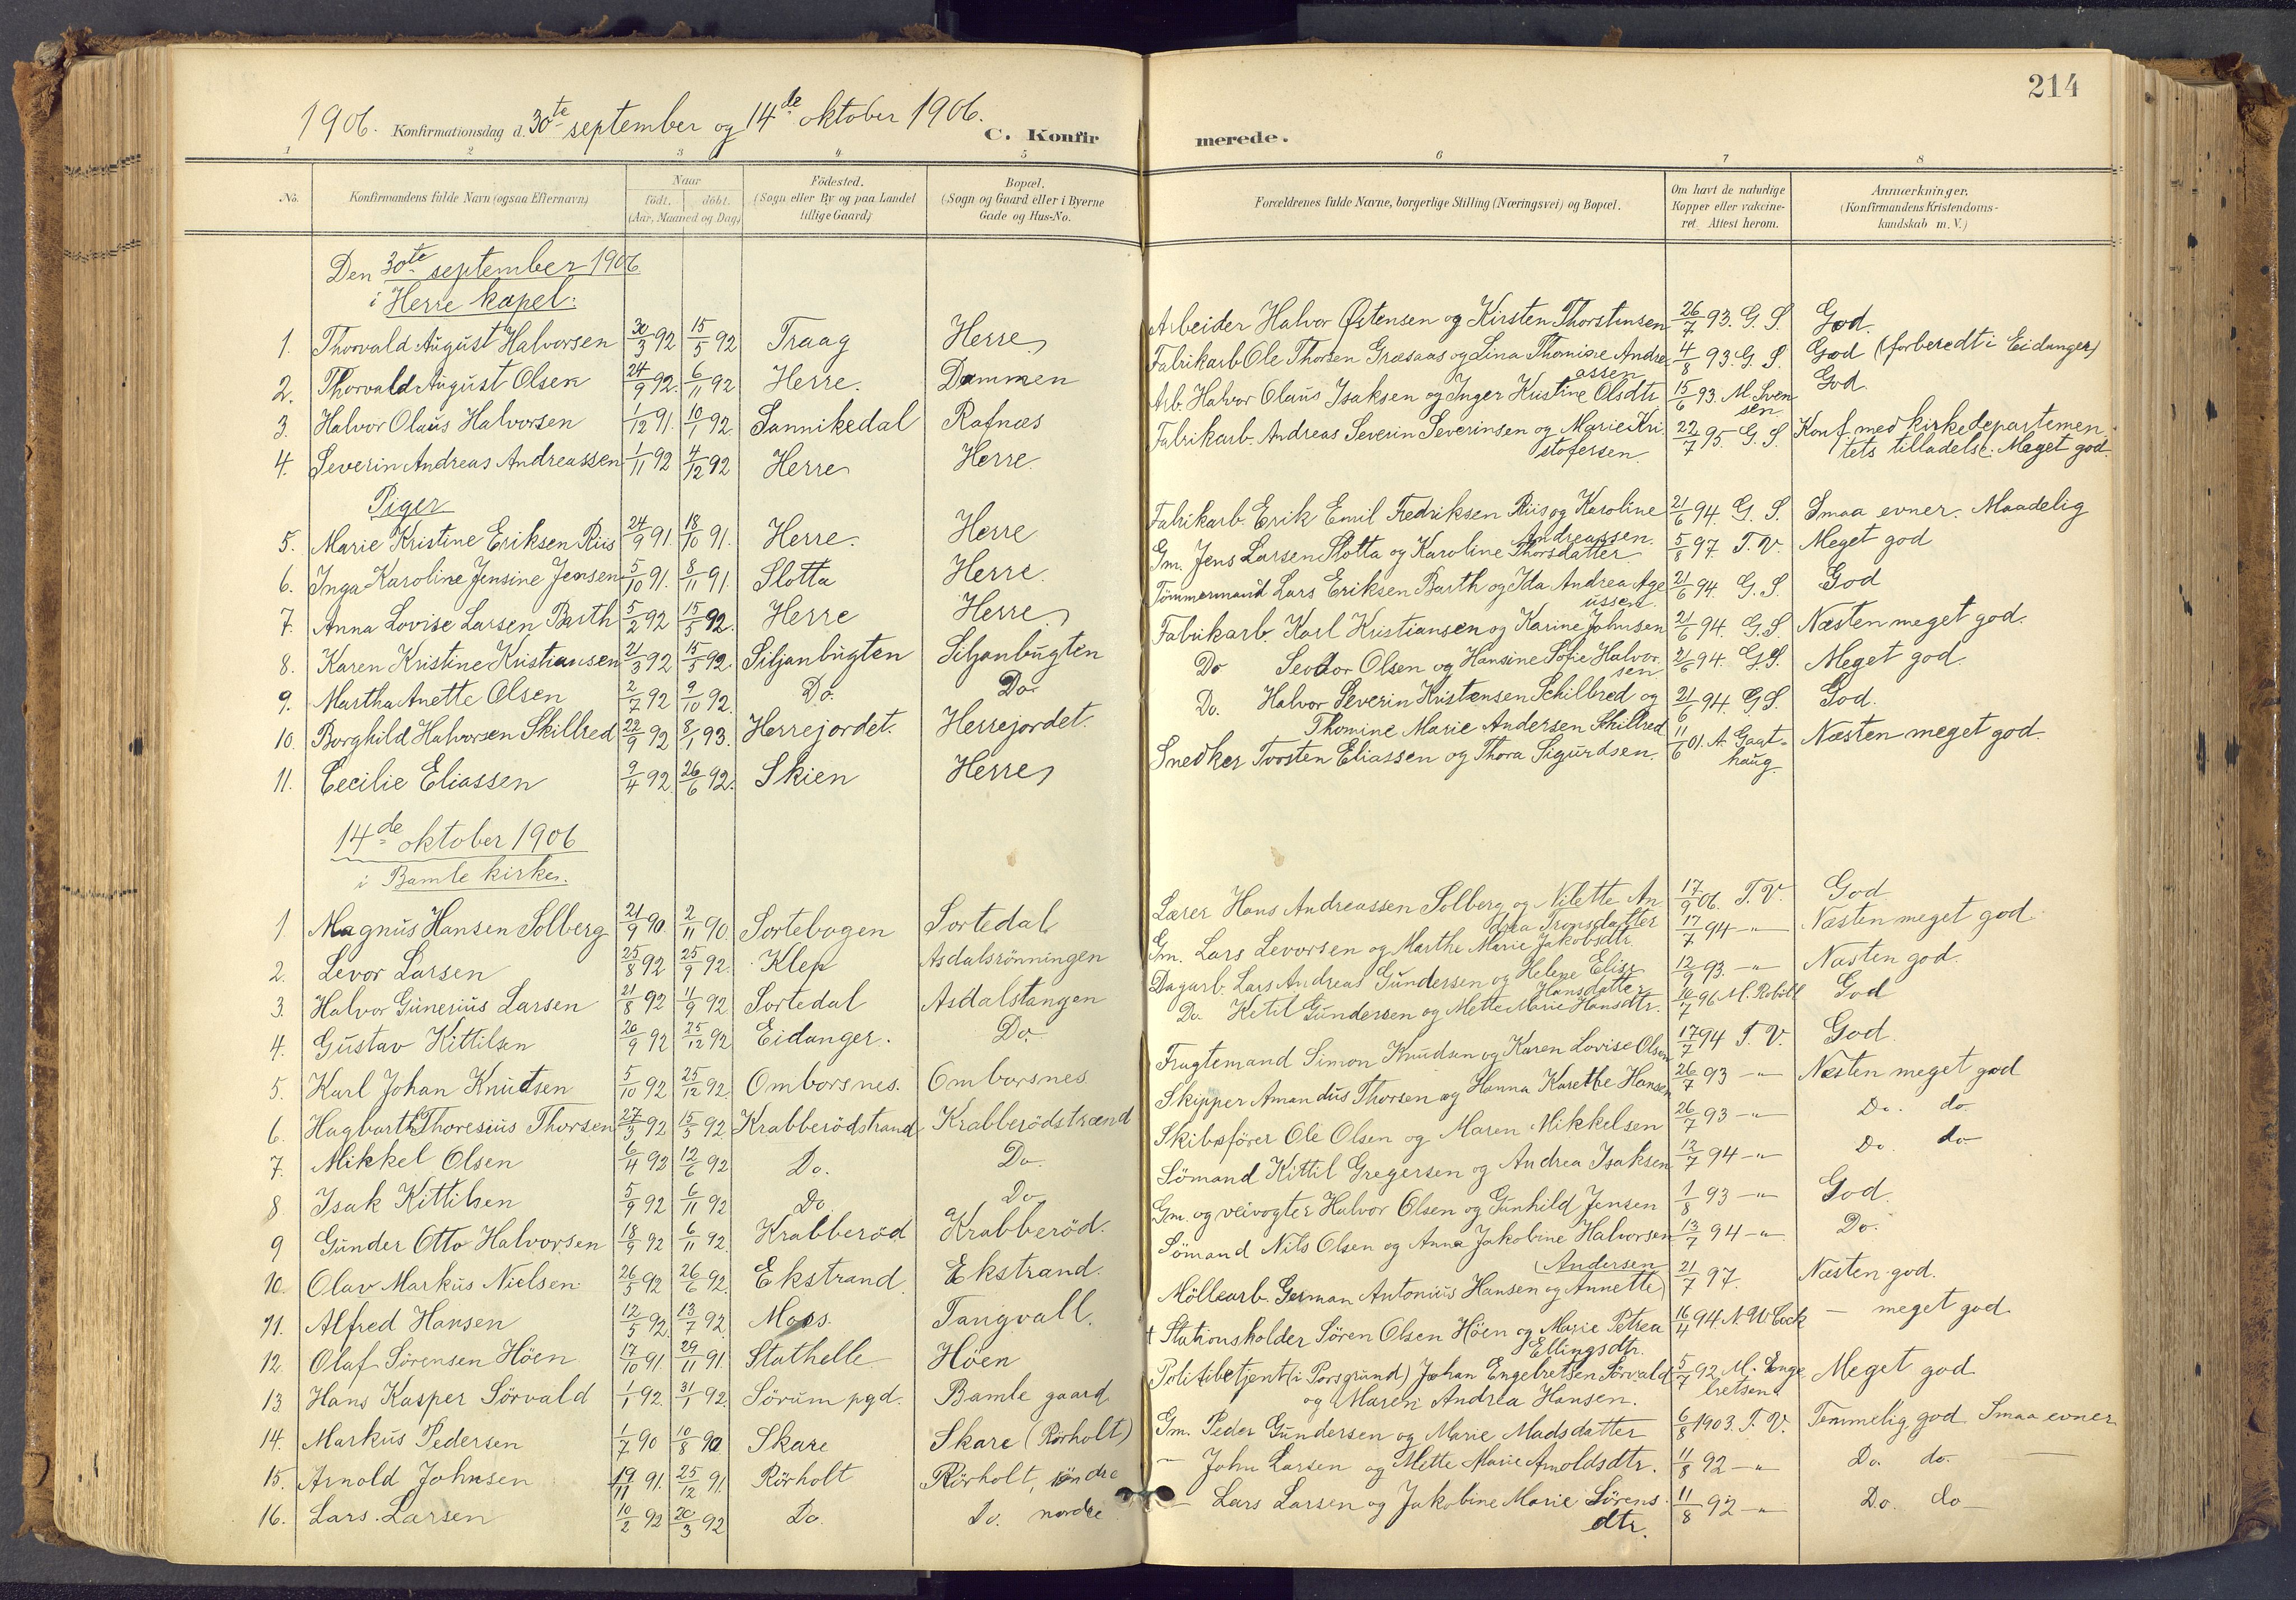 214
1906. Konfirmationsdag d. 30te september og 14de oktober 1906.
C. Konfirmerede.
1 2 3 4 5 6 7 8
No. Konfirmandens fulde Navn (ogsaa Efternavn) Naar födt. döbt. (Aar, Maaned og Dag) Födested. (Sogn eller By og paa Landet tillige Gaard) Bopæl. (Sogn og Gaard eller i Byerne Gade og Hus-No. Forældrenes fulde Navne, borgerlige Stilling (Næringsvei) og Bopæl. Om havt de naturlige Kopper eller vakcineret. Attest herom. Anmærkninger. (Konfirmandens Kristendomskundskab m. V.)
Den 30te september 1906
i Herre kapel:
1. Thorvald August Halvorsen 30/3 92 15/5 92 Traag Herre Arbeider Halvor Østensen og Kirsten Thorstensen 26/7 93. G. S. God.
2. Thorvald August Olsen 24/9 92. 6/11 92 Herre. Dammen Fabrikarb Ole Thorsen Grasaas og Lina Thomine Andreassen 4/8 93. G. S. God (forberedt i Eidanger)
3. Halvor Olaus Halvorsen 1/12 91. 10/1 92 Sannikedal Rafnæs Arb. Halvor Olaus Isaksen og Inger Kristine Olsdtr 15/6 93. M. Svensen God.
4. Severin Andreas Andreassen 1/11 92 4/12 92 Herre Herre. Fabrikarb. Andreas Severin Severinsen og Marie Kristofersen. 22/7 95. G. S Konf. med kirkedepartementets tilladelse. Meget god.
Piger
5. Marie Kristine Eriksen Riis 24/9 91. 18/10 91. Herre. Herre Fabrikarb. Erik Emil Fredriksen Riis og Karoline Andreassen. 21/6 94. G. S. Smaa evner. Maadelig
6. Inga Karoline Jensine Jensen 5/10 91. 8/11 91 Slotta Herre. Gm. Jens Larsen Slotta og Karoline Thorsdatter 5/8 97 T. V. Meget god
7. Anna Lovise Larsen Barth 5/2 92 15/5 92. Herre Herre Tömmermand Lars Eriksen Barth og Ida Andrea Ageussen. 21/6 94. G. S. God
8. Karen Kristine Kristiansen 21/3 92 15/5 92. Siljanbugten Siljanbugten Fabrikarb. Karl Kristiansen og Karine Johnsen 21/6 94. G. S. Næsten meget god.
9. Martha Anette Olsen 2/7 92 9/10 92. Do. Do. Do Olsen og Hansine Sofie Halvorsen 21/6 94. G S. Meget god.
10. Borghild Halvorsen Skilbred 22/9 92 8/1 93. Herrejordet. Herrejordet. Do. Halvor Severin Kristensen Schilbred og Thomine Marie Andersen Skilbred 21/6 94. G S. God.
11. Cecilie Eliassen 9/4 92. 26/6 92. Skien Herre Snedker Torsten Eliassen og Thora Sigurdsen. 11/6 01. A. Gaathaug. Næsten meget god.
14de oktober 1906
i Bamle kirke.
1 Magnus Hansen Solberg 21/9 90. 2/11 90. Sortebogen Sortedal Lærer Hans Andreassen Solberg og Nilette Andrea Tronsdatter 17/9 06. T. V. God
2. Levor Larsen 25/8 92 25/9 92. Klep Asdalsrönningen Gm. Lars Levorsen og Marthe Marie Jakobsdtr 17/7 94 -"- Næsten meget god
3. Halvor Gunerius Larsen 21/8 92 11/9 92 Sortedal Asdalstangen Dagarb. Lars Andreas Gundersen og Helene Elise Hansdatter 12/9 93. -"- Næsten god.
4. Gustav Kittilsen 20/9 92 25/12 92 Eidanger. Do. Do. Ketil Gundersen og Mette Marie Hansdtr. 10/7 96 M. God
5. Karl Johan Knudsen 5/10 92 25/12 92. Omborsnes. Omborsnes Fragtemand Simon Knudsen og Karen Lovise Olsen 17/7 94 T. V. God.
6. Hagbarth Thoresius Thorsen 27/3 92 15/5 92. Krabberödstrand Krabberödstrand Skipper Amandus Thorsen og Hanna Karethe Hansen 26/7 93 -"- Næsten meget god
7. Mikkel Olsen 6/4 92 12/6 92 Do. Do. Skibsförer Ole Olsen og Maren Mikkelsen 26/7 93 -"- Do. do
8 Isak Kittilsen 5/9 92 6/11 92 Do Do Sömand Kittil Gregersen og Andrea Isaksen 12/7 94 -"- Do. do
9 Gunder Otto Halvorsen 18/9 92 6/11 92. Krabberöd Krabberöd. Gm. og veivogter Halvor Olsen og Gunhild Jensen 1/8 93 -"- God.
10. Olav Markus Nielsen 26/5 92 26/6 92. Ekstrand Ekstrand. Sömand Nils Olsen og Anna Jakobine Halvorsen 13/7 94 -"- Do.
11. Alfred Hansen 12/5 92. 13/7 92. Moss. Tangvall. Möllearb. German Antonius Hansen og Annette (Andersen 21/7 97 Næsten god.
12. Olaf Sörensen Höen 17/10 91. 29/11 91. Stathelle Höen + Stationsholder Sören Olsen Höen og Marie Petrea Ellingsdtr. 16/4 94. N. W. Cock — meget god.
13 Hans Kasper Sörvald 1/1 92. 31/1 92. Sörum pgd. Bamle gaard Politibetjent (i Porsgrund) Johan Engebretsen Sörvald og Maren Andrea Hansen. 5/7 92. M. Engebretsen Meget god
14. Markus Pedersen 1/7 90 10/8 90 Skare Skare (Rörholt) Gm. Peder Gundersen og Marie Madsdatter 6/8 1903. T. V. Temmelig god Smaa evner
15. Arnold Johnsen 19/11 91. 25/12 91. Rörholt Rörholt, söndre — John Larsen og Mette Marie Arnoldsdtr. 11/8 92 -"- Do. do. —
16. Lars Larsen 10/2 92 20/3 92 Do. Do. nordre — Lars Larsen og Jakobine Marie Sörensdtr. 11/8 92 -"- Do. do —